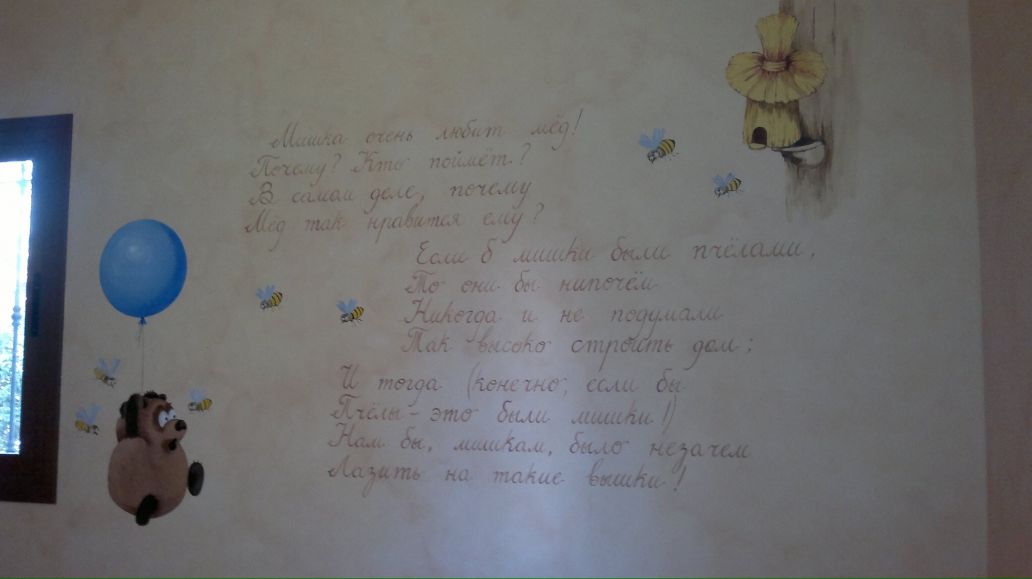 Мишка очень любит мёд!
Почему? Кто поймёт?
В самом деле, почему
Мёд так нравится ему?
Если б мишки были пчёлами,
То они бы нипочём
Никогда и не подумали
Так высоко строить дом;
И тогда (конечно, если бы
Пчёлы - это были мишки!)
Нам бы, мишкам, было незачем
Лазить на такие вышки!